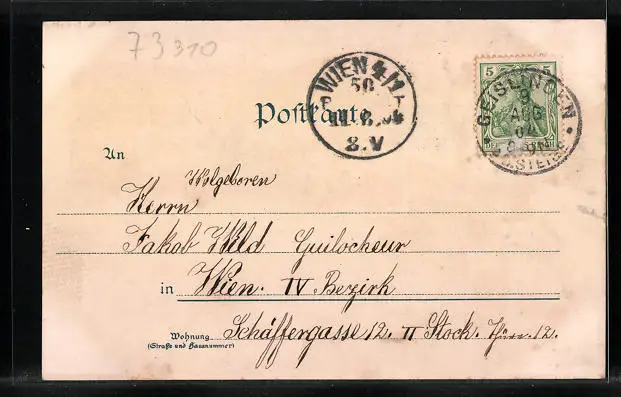 73310
WIEN 4/1
50
11.8.04
8.V
5
GEISLINGEN
9
AUG
04
A.D.STEIGE
Postkarte
An
Wolgeboren
Herrn
Jakob Wild Guilocheur
in Wien. IV Bezirk
Wohnung Schäffergasse 12. II Stock. Thüre 12.
(Straße und Hausnummer)